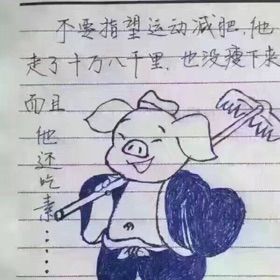 不要指望运动减肥，他
走了十万八千里，也没瘦下来
而且
他还吃素……